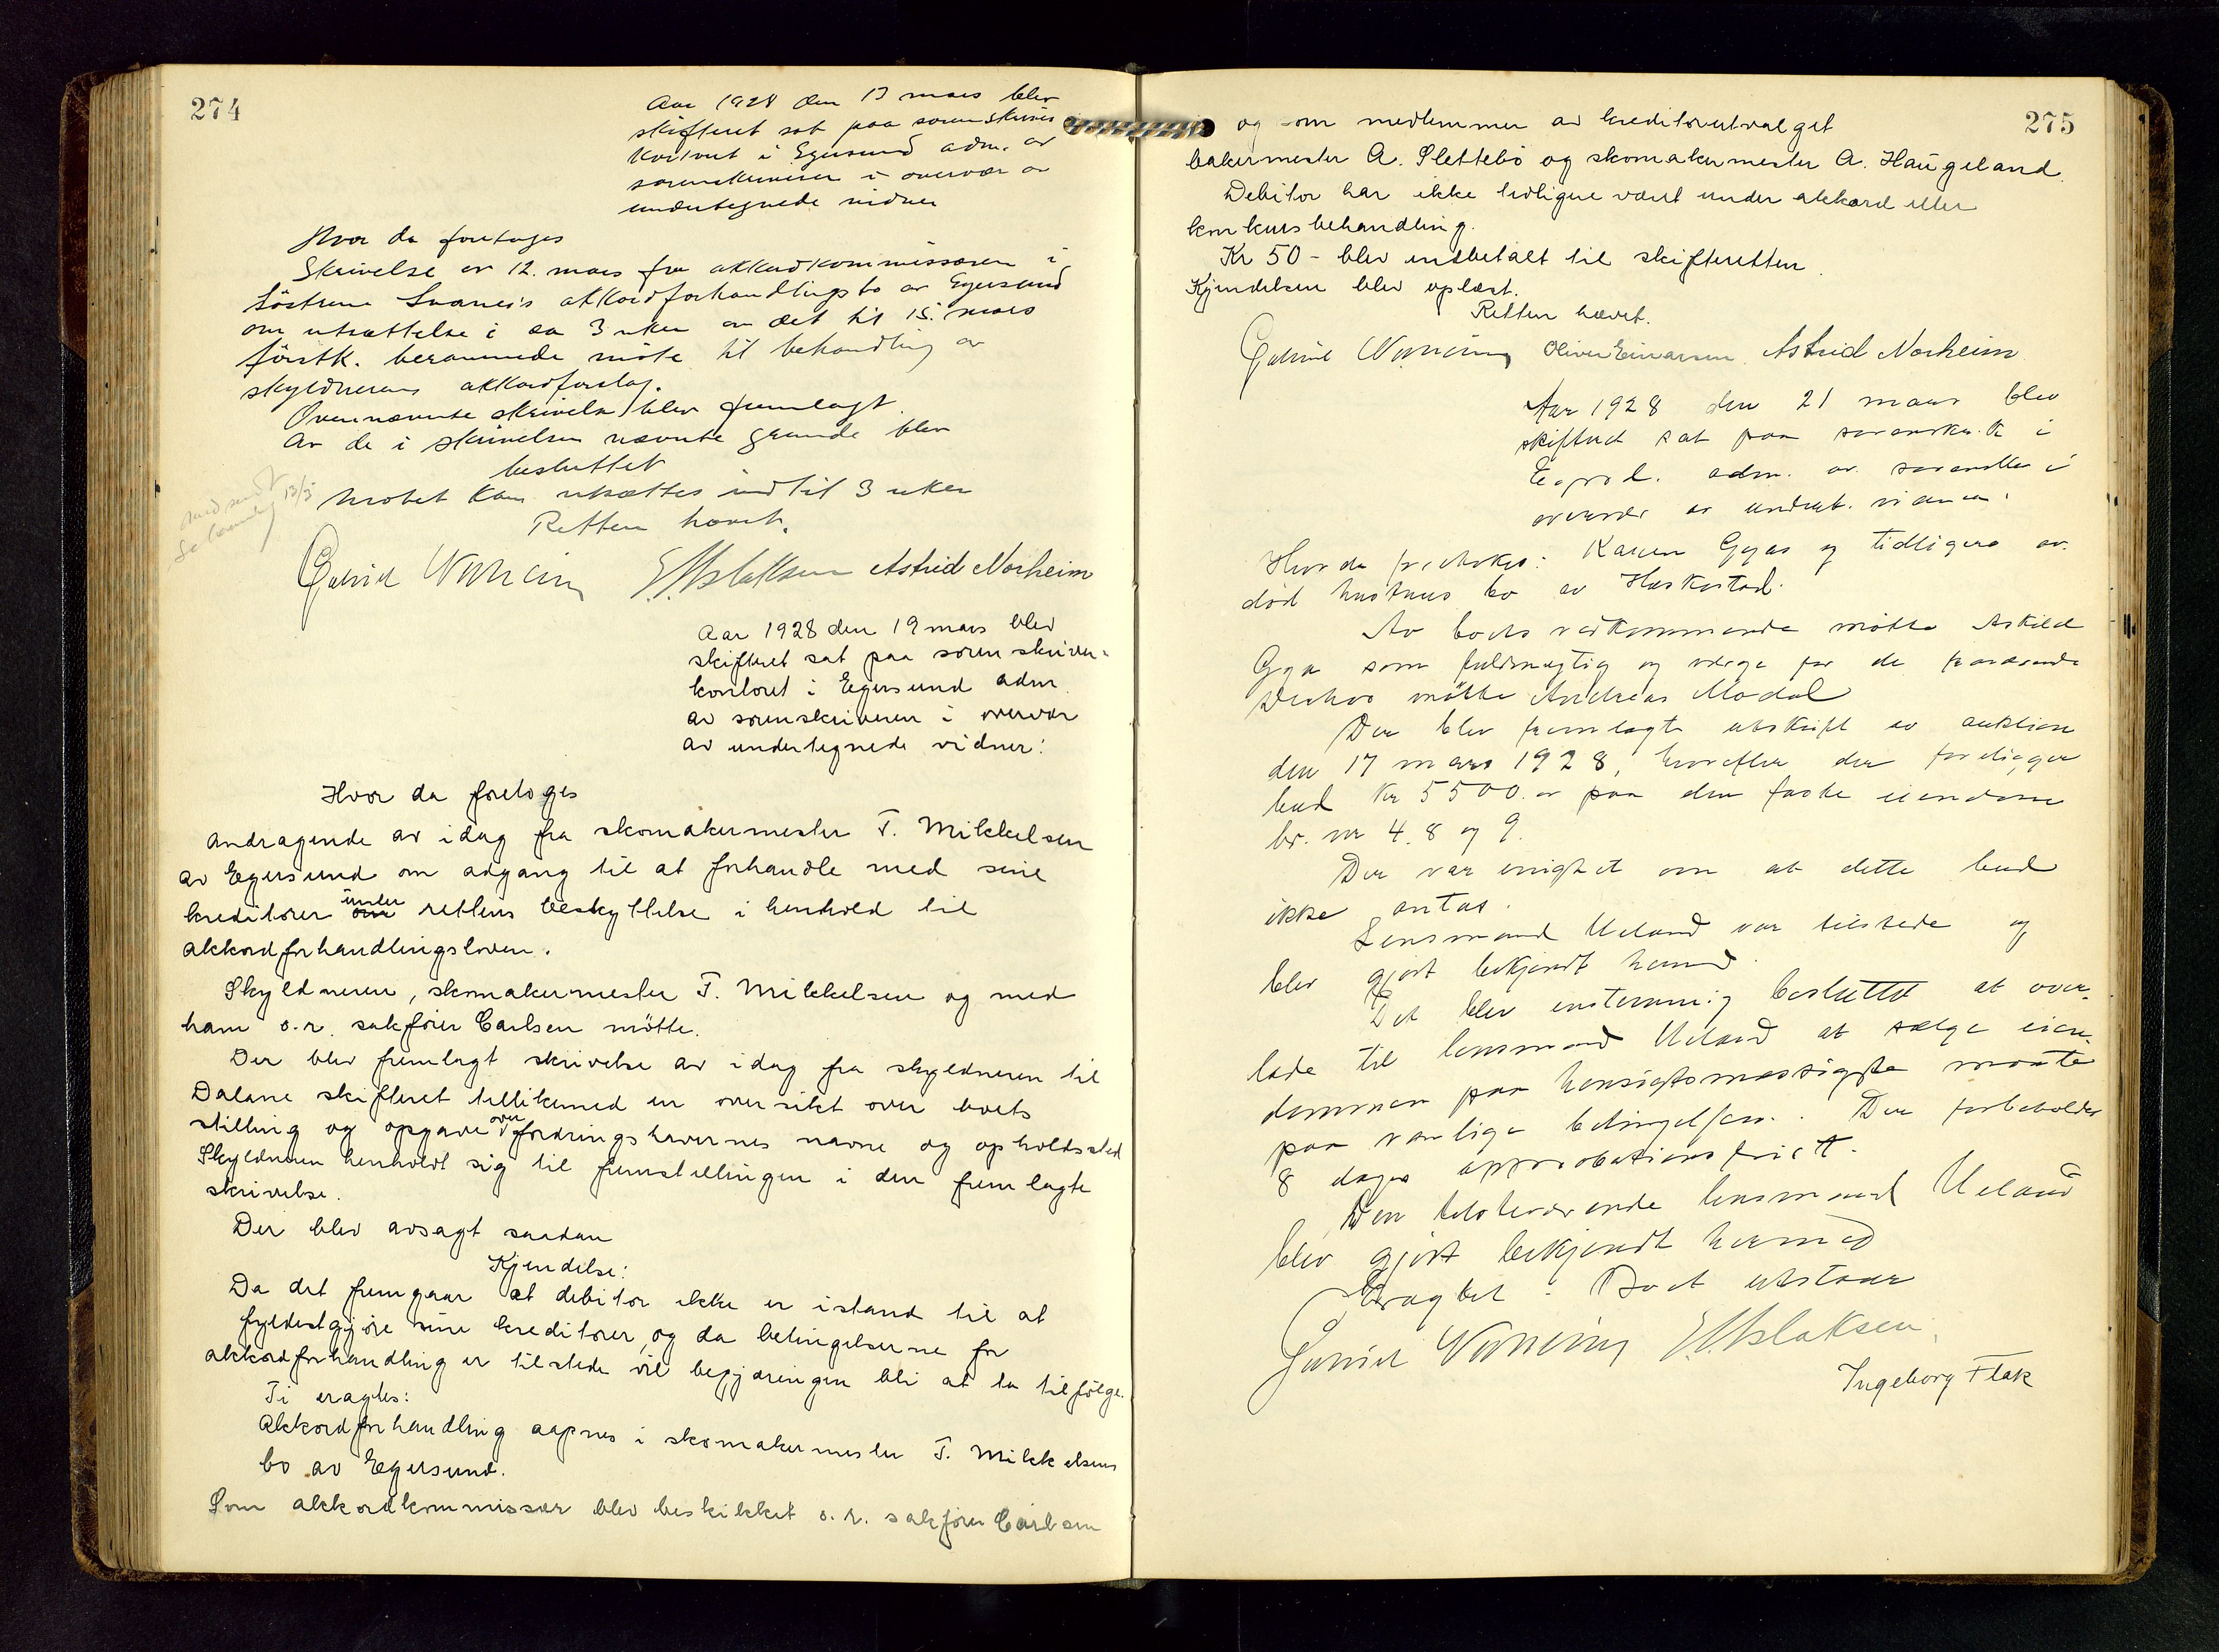 274
Aar 1928 den 13 mars blev
skifteret sat paa sorenskriver
kontoret i Egersund adm. av
sorenskriveren i overvær av
undertegnede vidner
Hvor da foretoges
Skrivelse av 12. mars fra akkordkommissæren i
Söstrene Svanes's akkordforhandlingsbo av Egersund
om utsættelse i ca 3 uker av det til 15. mars
förstk. berammede möte til behandling av
skyldnerens akkordforslag.
Ovennævnte skrivelse blev fremlagt.
Av de i skrivelsen nævnte grunde blev
besluttet
Mötet kan utsættes indtil 3 uker
13/3
Retten hævet.
Gabriel E. Aslaksen Astrid Norheim
Aar 1928 den 19 mars blev
skifteret sat paa sorenskriver-
kontoret i Egersund adm.
av sorenskriveren i overvær
av undertegnede vidner:
Hvor da foretoges
Andragende av idag fra skomakermester T. Mikkelsen
av Egersund om adgang til at forhandle med sine
kreditorer om under rettens beskyttelse i henhold til
akkordforhandlingsloven.
Skyldneren, skomakermester T. Mikkelsen og med
ham o.r. sakförer Carlsen mötte.
Der blev fremlagt skrivelse av idag fra skyldneren til
Dalane skifteret tillikemed en oversikt over boets
stilling og opgave over fordringshavernes navne og opholdssted
Skyldneren henholdt sig til fremstillingen i den fremlagte
skrivelse.
Der blev avsagt saadan
Kjendelse:
Da det fremgaar at debitor ikke er istand til at
fyldestgjøre sine kreditorer, og da betingelserne for
akkordforhandling er tilstede vil begjæringen bli at ta tilfölge.
Ti eragtes:
Akkordforhandling aapnes i skomakermester T. Mikkelsens
bo av Egersund.
Som akkordkommissær blev beskikket o.r. sakförer Carlsen
275
og som medlemmer av kreditorutvalget
bakermester A. Slettebö og skomakermester A. Haugeland.
Debitor har ikke tidligere været under akkord eller
konkursbehandling.
Kr 50 - blev indbetalt til skifteretten.
Kjendelsen blev oplæst.
Retten hævet.
Gabriel Oliver Einarsen Astrid Norheim
Aar 1928 den 21 mars blev
skifteret sat paa sorenskr.k i
adm. av i
overvær av undert. vidner.
Hvor da foretokes: Karen Gyas og tidligere av
död hustrus bo av Heskestad.
Av boets vedkommende mötte Askild
Gya som fuldmægtig og værge for de fraværende
mötte Andreas Modal
Der blev fremlagt utskrift av auktion
den 17 mars 1928, hvorefter der foreligger
bud Kr 5500.- paa den faste eiendom
br. nr 4. 8 og 9.
Der var enighet om at dette bud
ikke antas.
Lensmand Ueland var tilstede og
blev gjort bekjendt hermed.
Det blev enstemmig besluttet at over-
lade til lensmand Ueland at sælge eien-
dommen paa hensigtsmæssigste maate
paa vanlige betingelser. Der forbeholdes
8 dages approbationsfrist.
Den tilstedeværende lensmand Ueland
blev gjort bekjendt hermed
Eragtet: Boet utstaar
Gabriel E. Aslaksen.
Ingeborg Flak